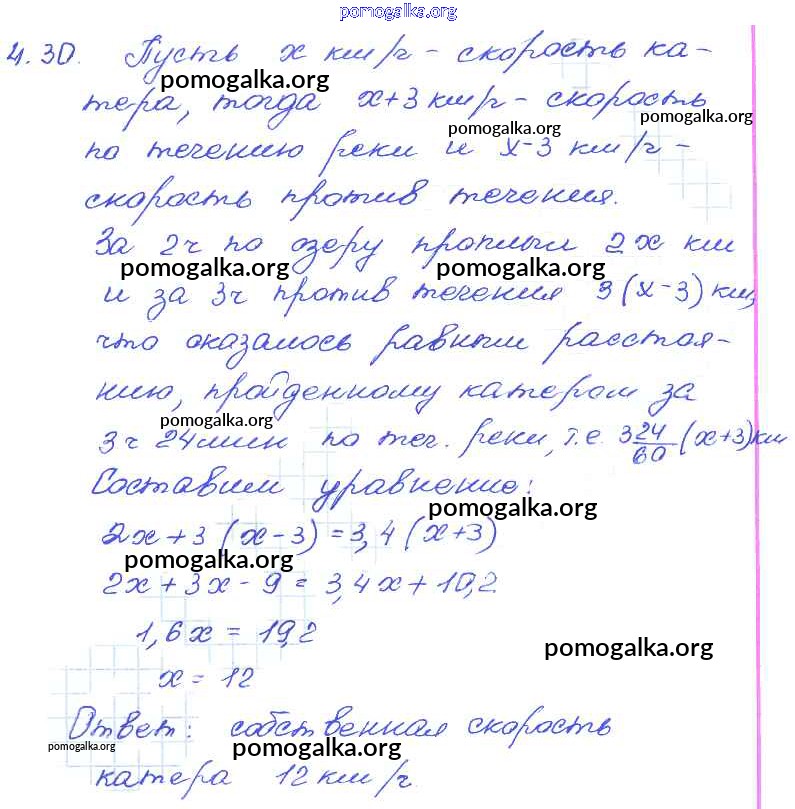 pomogalka.org
4.30. Пусть x км/ч - скорость ка-
pomogalka.org
тера, тогда x+3 км/ч - скорость
pomogalka.org pomogalka.org
по течению реки и x-3 км/ч -
скорость против течения.
pomogalka.org
За 2ч по озеру проплыл 2x км
pomogalka.org pomogalka.org
и за 3ч против течения 3(x-3) км,
что оказалось равным расстоя-
нию, пройденному катером за
pomogalka.org
3ч 24мин по теч. реки, т.е. 3 24/60 (x+3) км
Составим уравнение:
pomogalka.org
2x+3(x-3)=3,4(x+3)
pomogalka.org
2x+3x-9=3,4x+10,2
1,6x=19,2
pomogalka.org
x=12
Ответ: собственная скорость
pomogalka.org pomogalka.org
катера 12 км/ч.